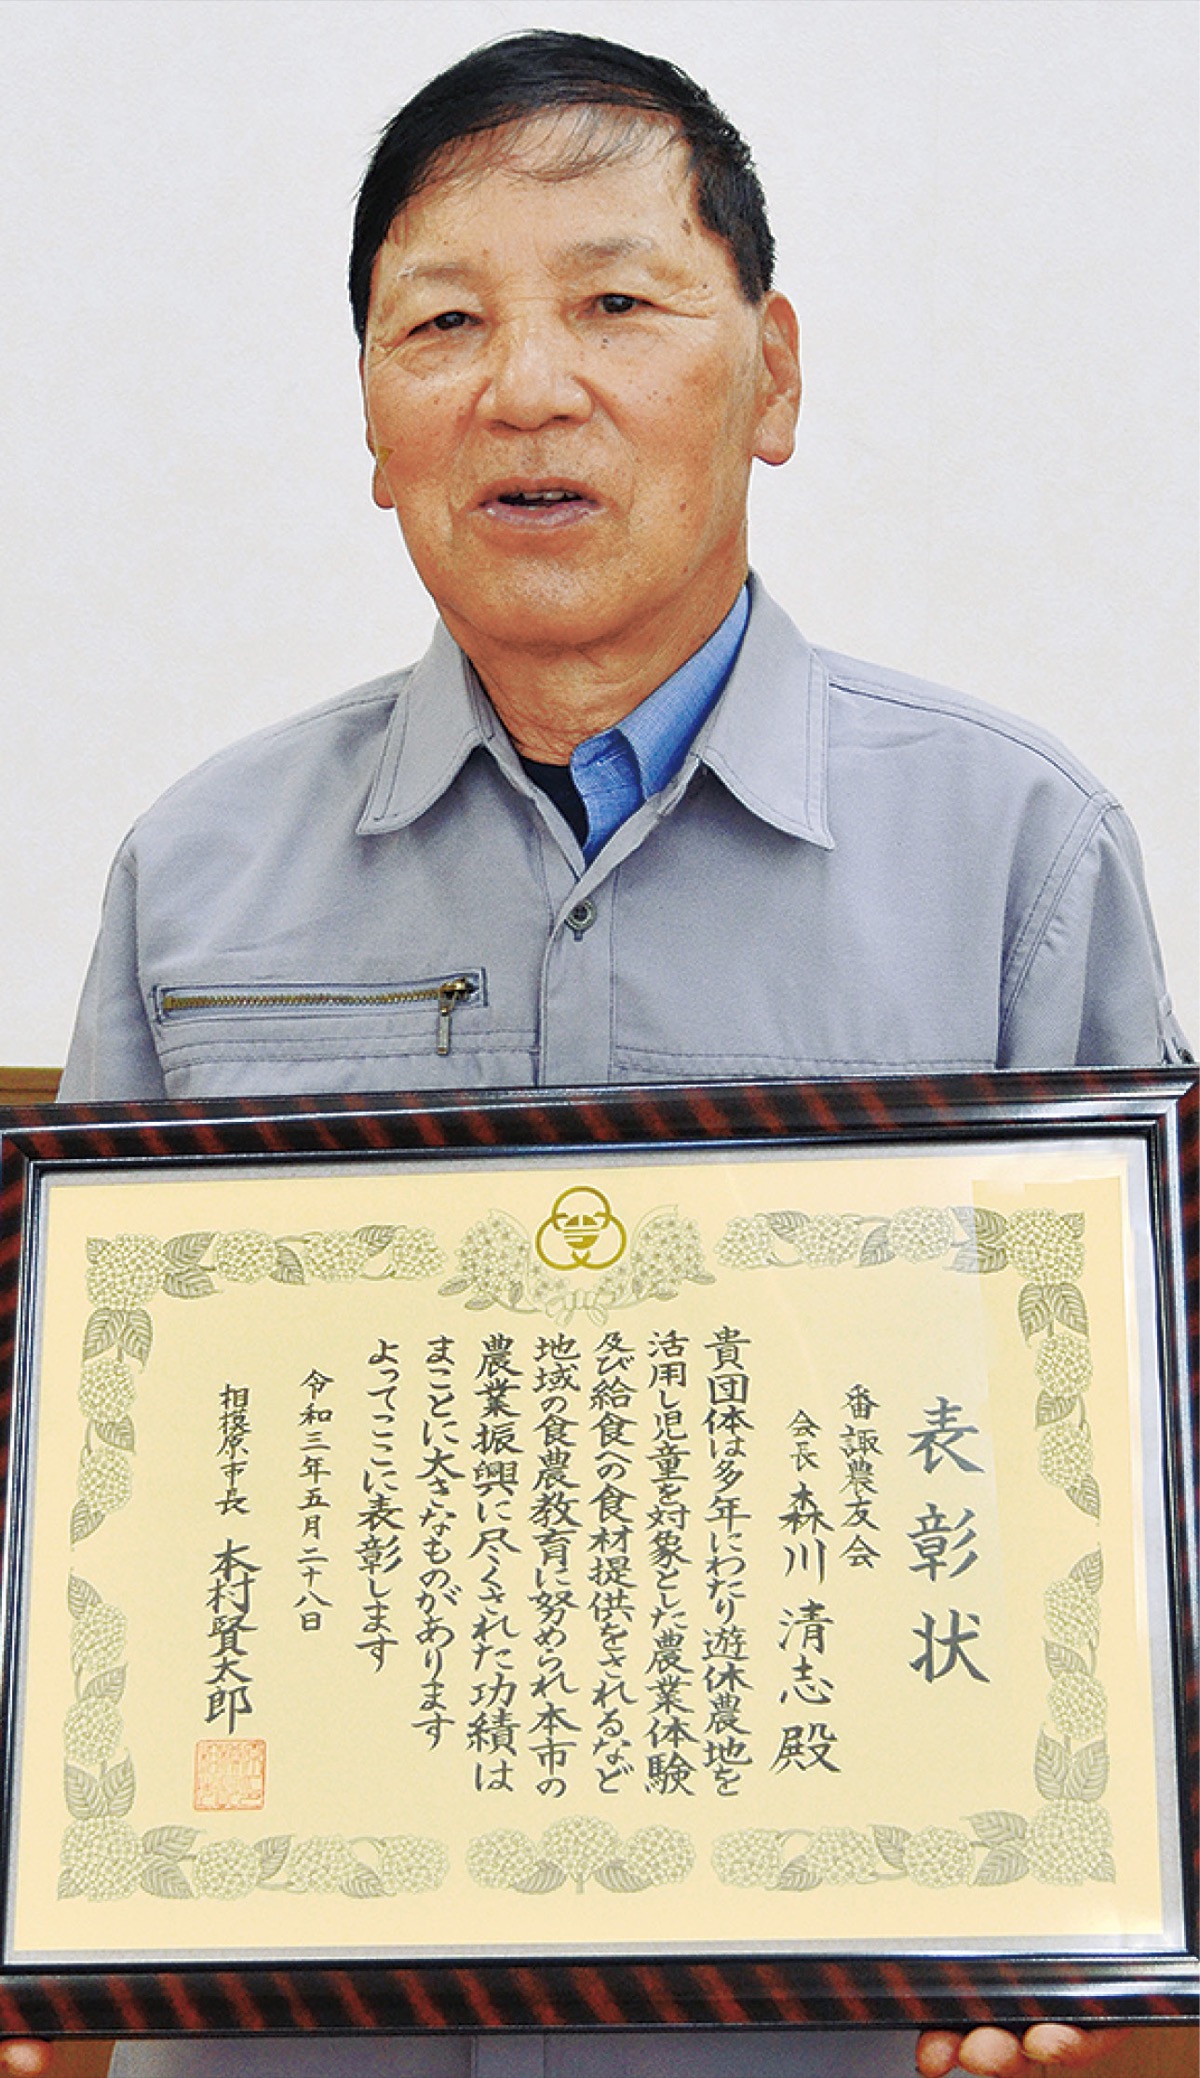 表彰状
番諏農友会
会長 森川清志殿
貴団体は多年にわたり遊休農地を
活用し児童を対象とした農業体験
及び給食への食材提供をされるなど
地域の食農教育に努められ本市の
農業振興に尽くされた功績は
まことに大きなものがあります
よってここに表彰します
令和三年五月二十八日
相模原市長 本村賢太郎